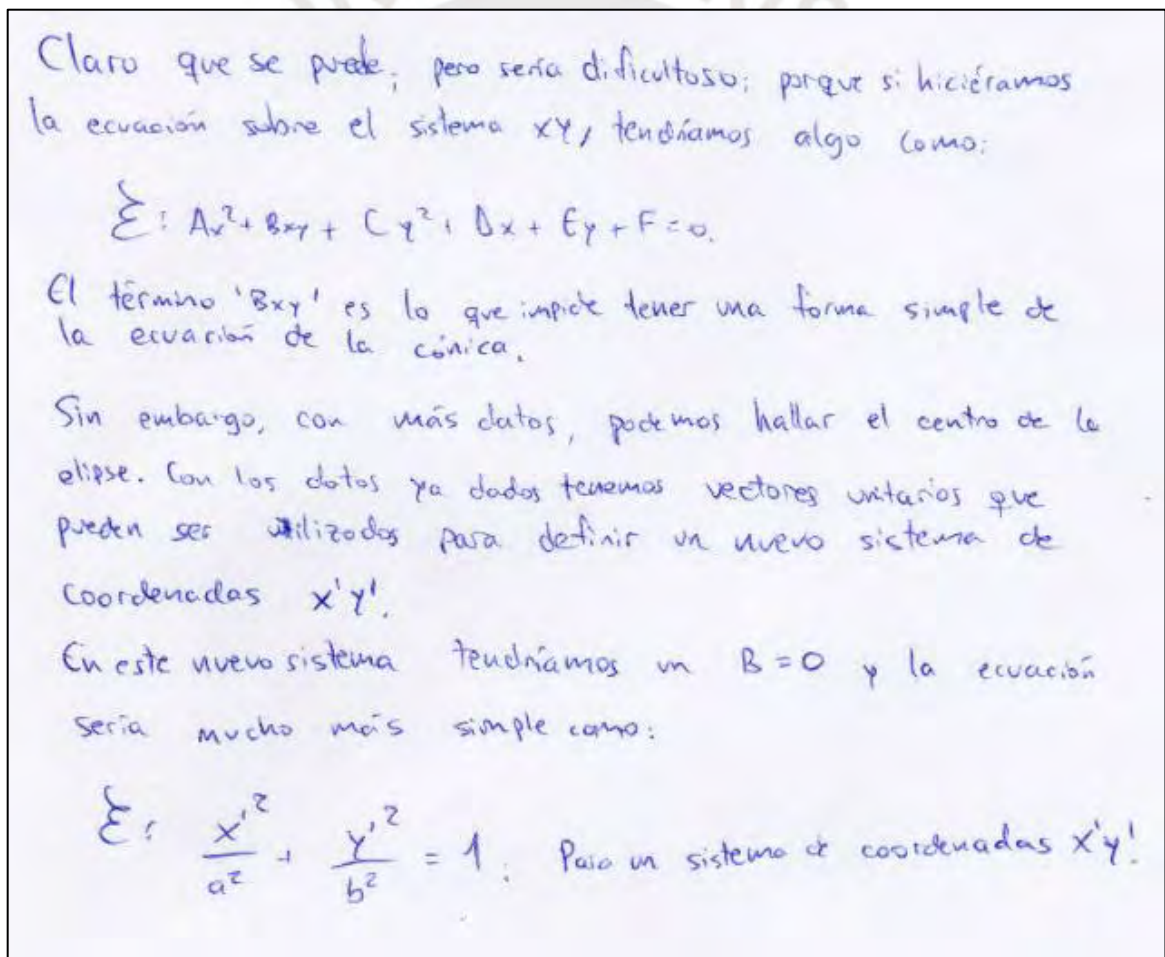 Claro que se puede, pero sería dificultoso; porque si hiciéramos
la ecuación sobre el sistema XY, tendríamos algo como:
Ɛ: Ax² + Bxy + Cy² + Dx + Ey + F = 0.
El término 'Bxy' es lo que impide tener una forma simple de
la ecuación de la cónica.
Sin embargo, con más datos, podemos hallar el centro de la
elipse. Con los datos ya dados tenemos vectores unitarios que
pueden ser utilizados para definir un nuevo sistema de
coordenadas x'y'.
En este nuevo sistema tendríamos un B = 0 y la ecuación
sería mucho más simple como:
Ɛ: x'²/a² + y'²/b² = 1. Para un sistema de coordenadas x'y'.